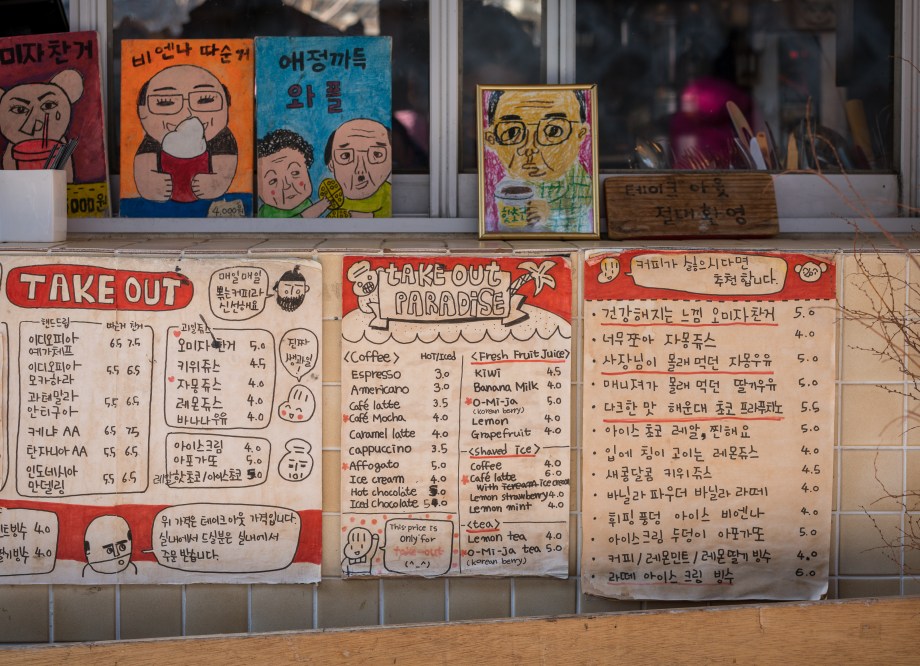 오미자 찬거
000
비엔나 따순거
4,000원
애정까득
와플
테이크 아웃
절대환영
TAKE OUT
매일매일
볶는커피라
신선해요
핸드드립 따순거 찬거
이디오피아
예가체프 6.5 7.5
이디오피아
모카하라 5.5 6.5
과테말라
안티구아 5.5 6.5
케냐 AA 6.5 7.5
탄자니아 AA 5.5 6.5
인도네시아
만델링 5.5 6.5
과일쥬스
오미자쥬스 5.0
키위쥬스 4.5
자몽쥬스 4.0
레몬쥬스 4.0
바나나우유 4.0
진짜
생과일!
아이스크림 4.0
아포가토 5.0
레알핫초코/아이스초코 5.0
4.0
딸기빙수 4.0
위 가격은 테이크아웃 가격입니다.
실내에서 드실분은 실내에서
주문 받습니다.
TAKE OUT
PARADISE
<Coffee> HOT/ICED
Espresso 3.0
Americano 3.0
Café latte 3.5
Café Mocha 4.0
Caramel latte 4.0
cappuccino 3.5
Affogato 5.0
Ice cream 4.0
Hot chocolate
Iced chocolate
This price is
only for
take-out
(^_^)
<Fresh Fruit Juice>
KiWi 4.5
Banana Milk 4.0
O-Mi-ja 5.0
(korean berry)
Lemon 4.0
Grapefruit 4.0
<shaved ice>
Coffee 4.0
Café latte 6.0
With icecream
Lemon strawberry 4.0
Lemon mint 4.0
<tea>
Lemon tea 4.0
O-Mi-Ja tea 5.0
(korean berry)
커피가 싫으시다면
추천합니다.
· 건강해지는 느낌 오미자찬거 5.0
· 너무쪼아 자몽쥬스 4.0
· 사장님이 몰래 먹던 자몽우유 5.0
· 매니져가 몰래 먹던 딸기우유 5.0
· 다크한 맛 해운대 초코 프라푸치노 5.5
· 아이스 초코 레알, 찐해요 5.0
· 입에 침이 고이는 레몬쥬스 4.0
· 새콩달콩 키위쥬스 4.5
· 바닐라 파우더 바닐라 라떼 4.0
· 휘핑 퐁덩 아이스 비엔나 4.0
· 아이스크림 두덩이 아포가토 5.0
· 커피/레몬민트/레몬딸기 빙수 4.0
· 라떼 아이스크림 빙수 6.0